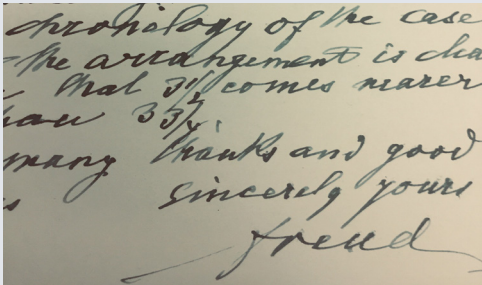 chronology of the case
the arrangement is cha
that 3½ comes nearer
han 3¾.
many thanks and good
s sincerely yours
freud